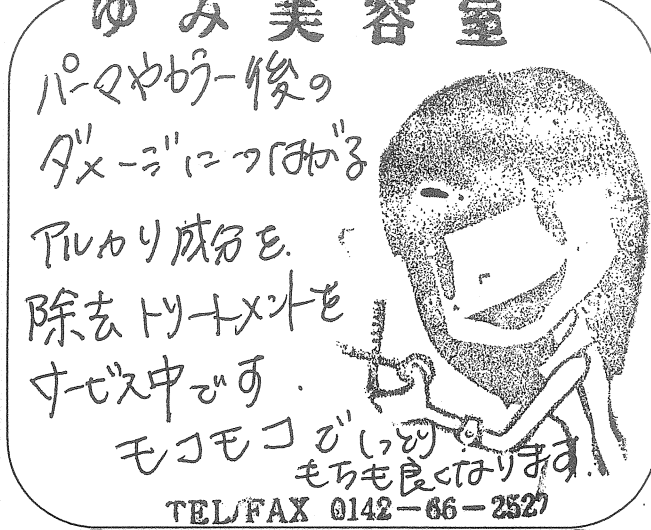 ゆみ美容室
パーマやカラー後の
ダメージにつながる
アルカリ成分を.
除去トリートメントを
サービス中です.
モコモコでしっとり
もちも良くなります.
TEL/FAX 0142-66-2527